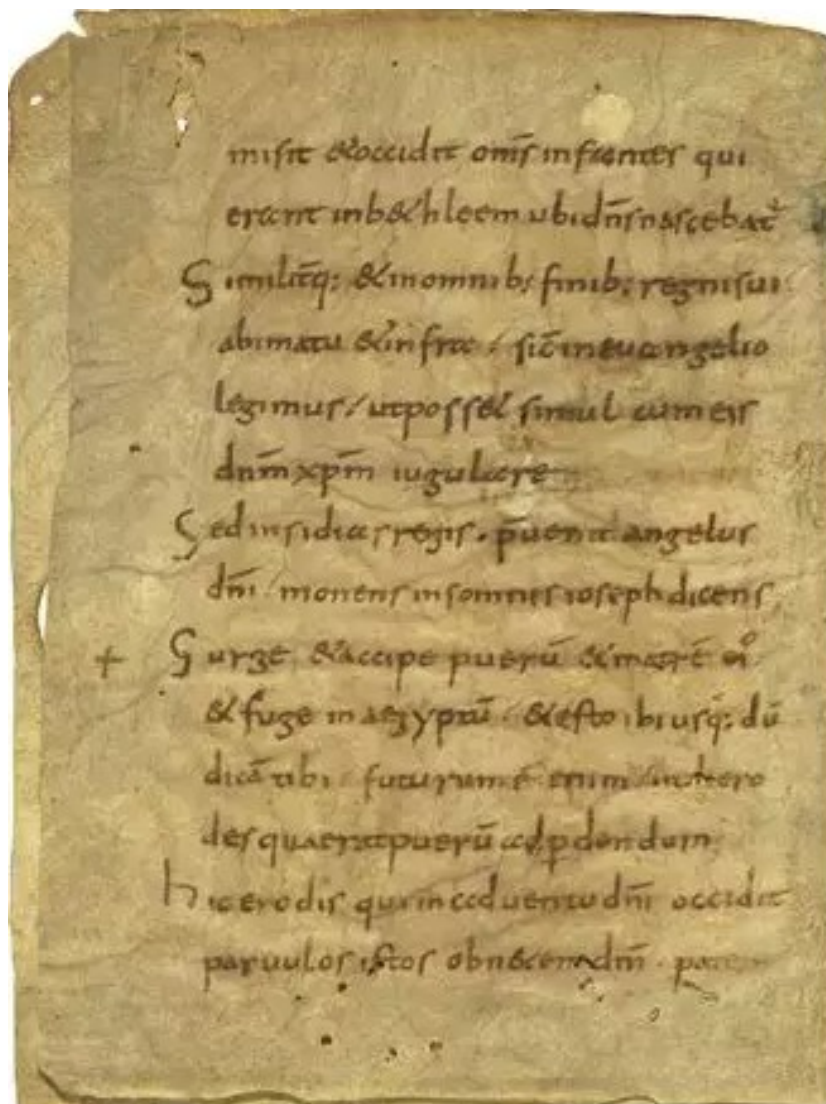 misit & occidit om̄s infantes qui
erant in b&hleem ubi dn̄s nascebat᷑
Similit̄q; & in omnib; finib; regni sui
abimatu & infra / sic̄ in euangelio
legimus / ut poss& simul cum eis
dn̄m xp̄m iugulare
Sed insidias regis . p̄uenit angelus
dn̄i / monens in somnis ioseph dicens,
+ Surge & accipe puerū & matrē ei᷒
& fuge in aegyptū . & esto ibi usq; dū
dicā tibi / futurum ē enim / ut hero
des quaerat puerū ad ꝑdendum;
hic erodis qui in aduentu dn̄i occidit
paruulos istos ob n&em dn̄i .